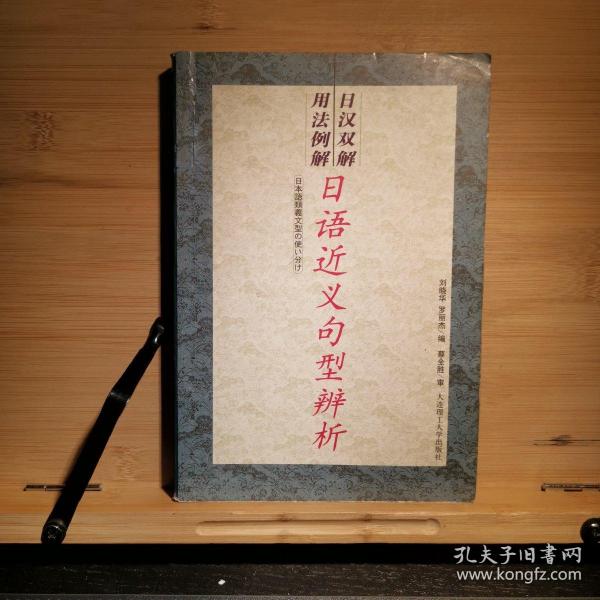 日汉双解
用法例解
日语近义句型辨析
日本語類義文型の使い分け
刘晓华 罗丽杰/编 蔡全胜/审 大连理工大学出版社
孔夫子旧書网
www.kongfz.com